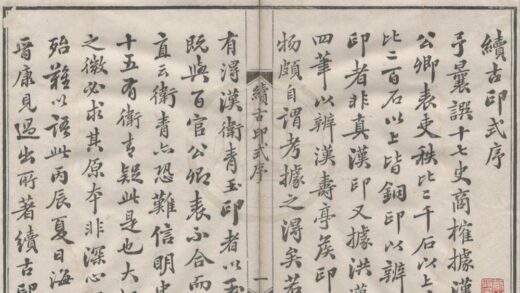 續古印式序
予曩譔十七史商榷據漢
公卿表吏秩比二千石以上
比二百石以上皆銅印以辨
印者非真漢印又據洪
四筆以辨漢壽亭矦印
物頗自謂考據之淂矣若
續古印式 序 一
有淂漢衛青玉印者以玉
既與百官公卿表不合而
直云衛青亦恐難信明史
十五有衛青疑此是也大
之微必求其原本非深心
殆難以語此丙辰夏日海
晉康見過出所著續古印